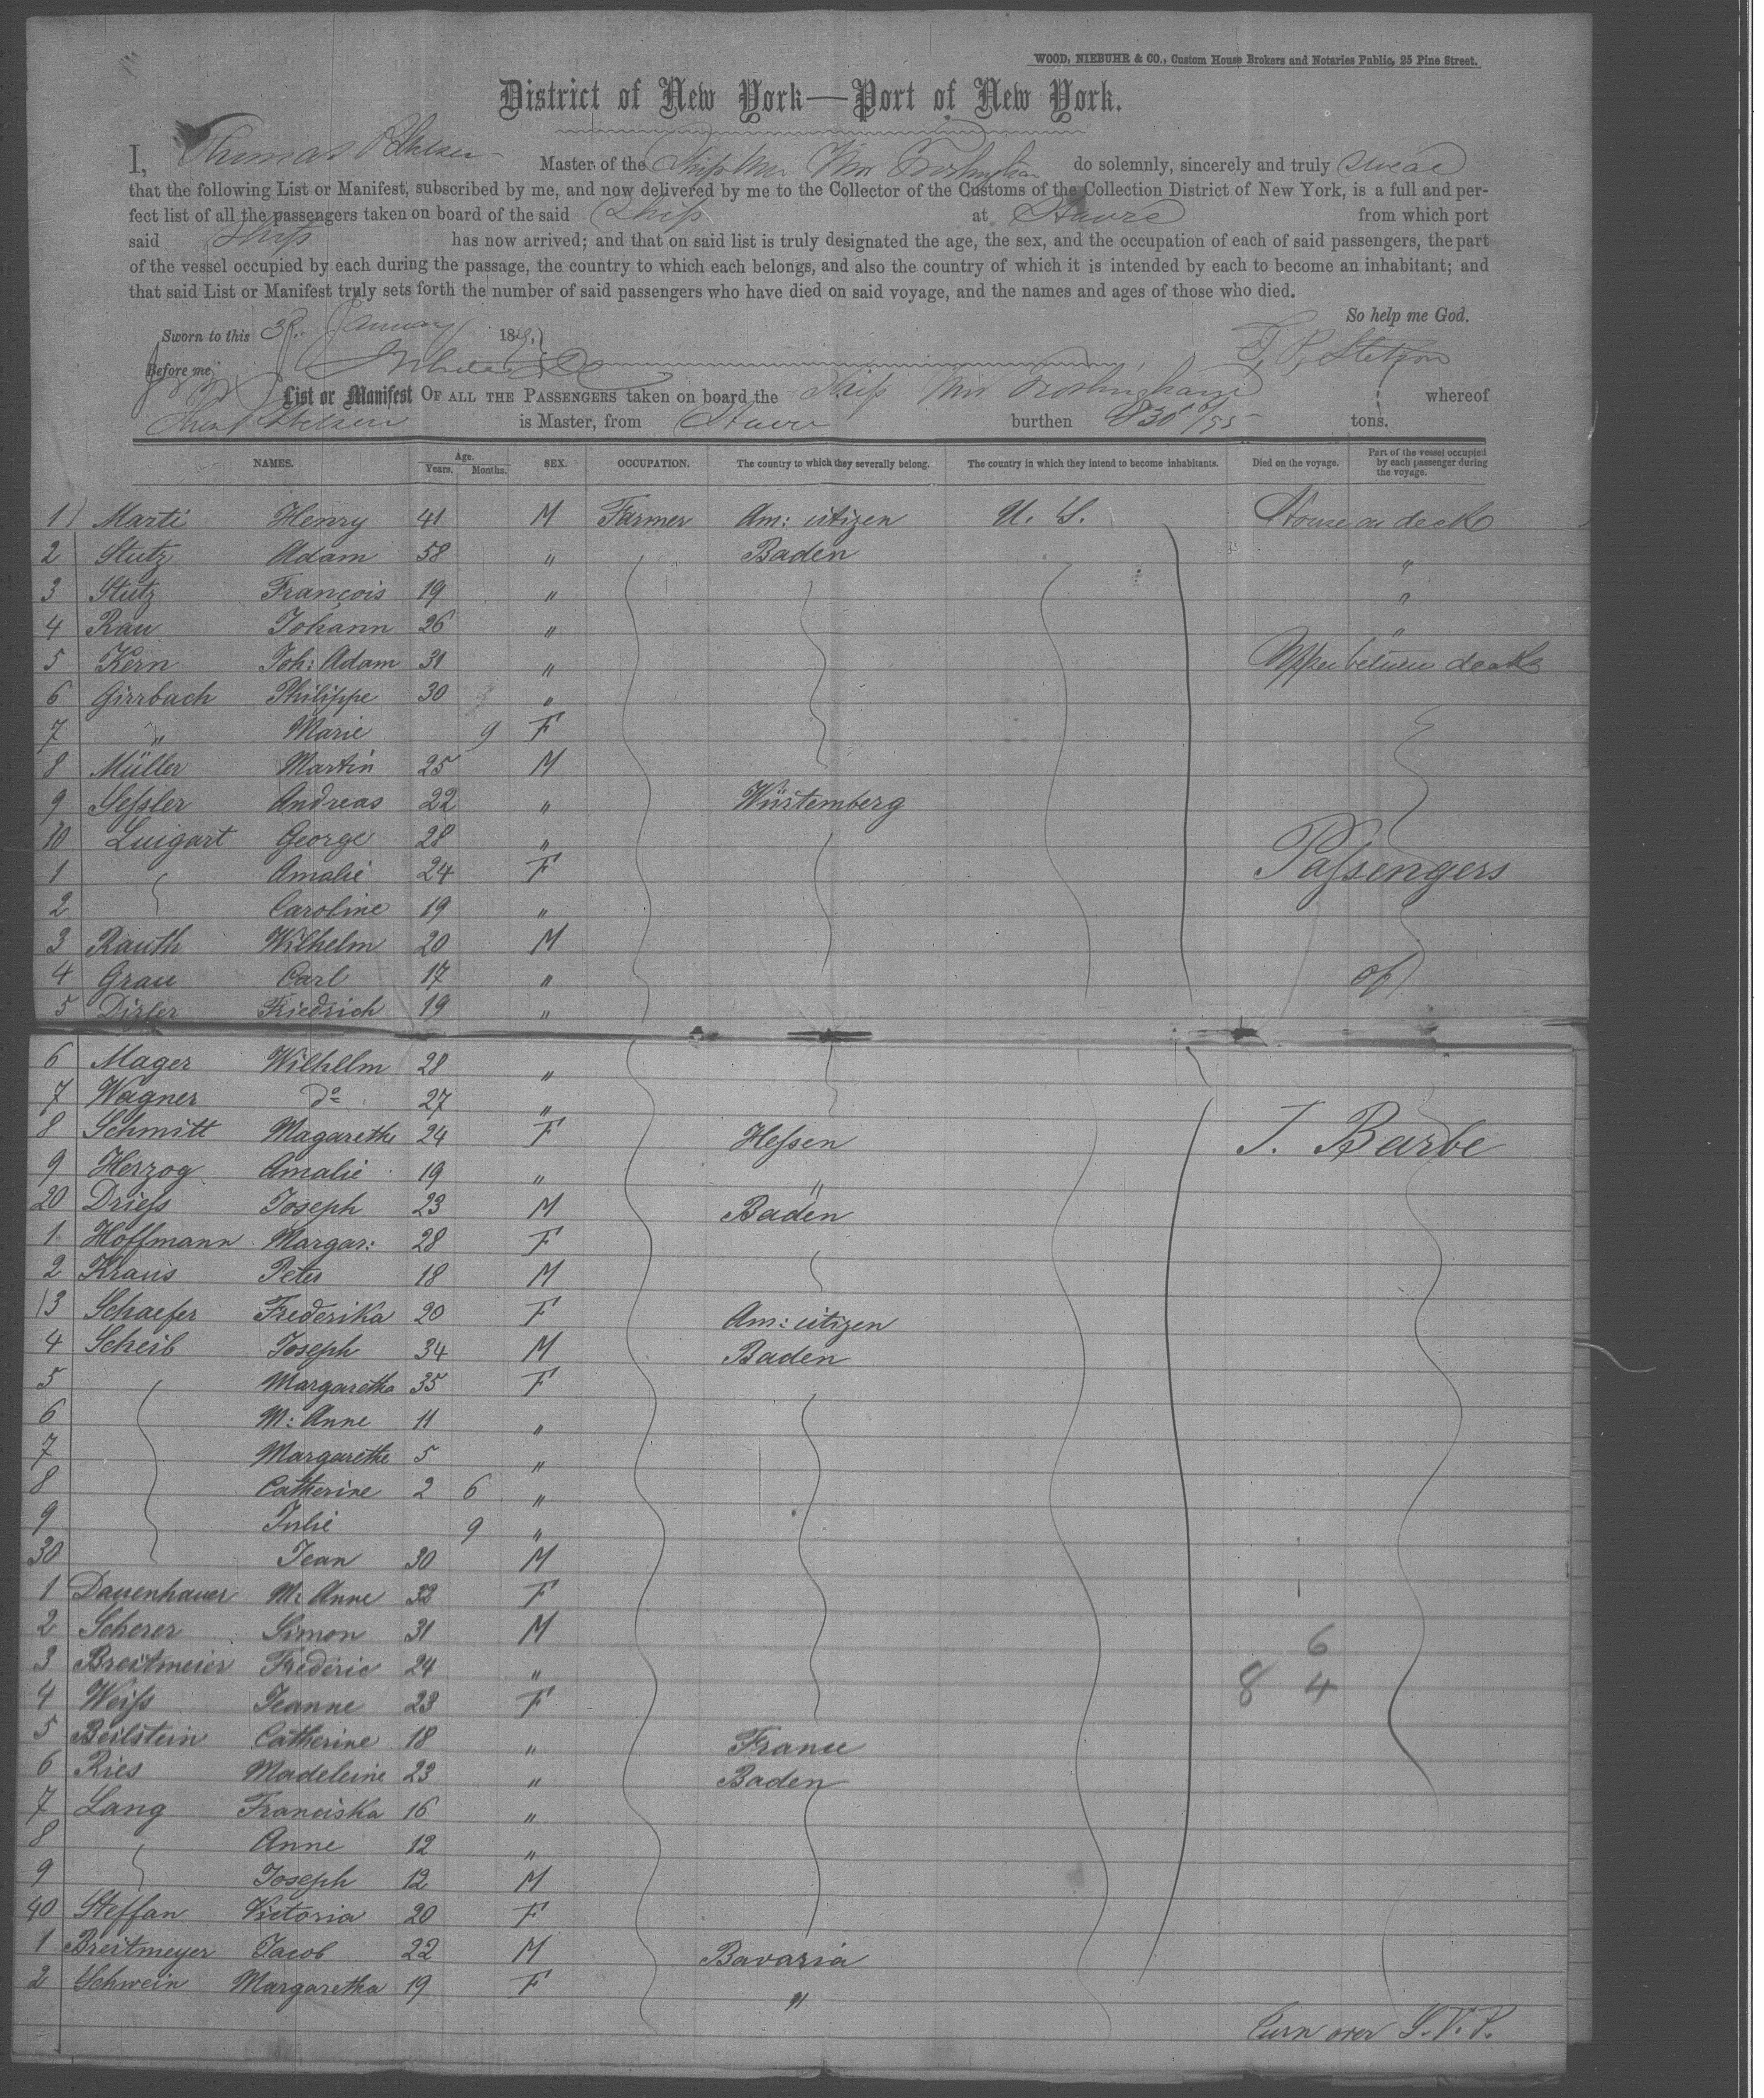 WOOD, NIEBUHR & CO., Custom House Brokers and Notaries Public, 25 Pine Street.
District of New York—Port of New York.
I, Thomas Master of the Ship Wm Frothingham do solemnly, sincerely and truly swear
that the following List or Manifest, subscribed by me, and now delivered by me to the Collector of the Customs of the Collection District of New York, is a full and per-
fect list of all the passengers taken on board of the said Ship at Havre from which port
said Ship has now arrived; and that on said list is truly designated the age, the sex, and the occupation of each of said passengers, the part
of the vessel occupied by each during the passage, the country to which each belongs, and also the country of which it is intended by each to become an inhabitant; and
that said List or Manifest truly sets forth the number of said passengers who have died on said voyage, and the names and ages of those who died.
So help me God.
Sworn to this January 18
T. P. Stetson
Before me
List or Manifest OF ALL THE PASSENGERS taken on board the Ship Wm Frothingham whereof
is Master, from Havre burthen 830 /95 tons.
NAMES. Age. Years. Months. SEX. OCCUPATION. The country to which they severally belong. The country in which they intend to become inhabitants. Died on the voyage. Part of the vessel occupied by each passenger during the voyage.
1 Marti Henry 41 M Farmer Am: citizen U. S. House on deck
2 Stutz Adam 58 " Baden "
3 Stutz François 19 " "
4 Rau Johann 26 " "
5 Kern Joh: Adam 31 " Upper between decks
6 Girrbach Philippe 30 "
7 " Marie 9 F
8 Müller Martin 25 M
9 Sessler Andreas 22 " Würtemberg
10 Luigart George 28 "
1 Amalie 24 F Passengers
2 Caroline 19 "
3 Rauth Wilhelm 20 M
4 Grau Carl 17 " of
5 Dizler Friedrich 19 "
6 Mager Wilhelm 28 "
7 Wagner do 27 "
8 Schmitt Magarethe 24 F Hessen J. Barbe
9 Herzog Amalie 19 " "
20 Driess Joseph 23 M Baden
1 Hoffmann Margar: 28 F
2 Kraus Peter 18 M
3 Schaefer Frederika 20 F Am: citizen
4 Scheib Joseph 34 M Baden
5 Margaretha 35 F
6 M: Anne 11 "
7 Margarethe 5 "
8 Catherine 2 6 "
9 Julie 9 "
30 Jean 30 M
1 Dauenhauer M: Anne 32 F
2 Scherer Simon 31 M 6
3 Breitmeier Frederic 24 " 8 4
4 Weiss Jeanne 23 F
5 Beilstein Catherine 18 " France
6 Ries Madeleine 23 " Baden
7 Lang Franciska 16 "
8 Anne 12 "
9 Joseph 12 M
40 Steffan Victoria 20 F
1 Breitmeyer Jacob 22 M Bavaria
2 Schwein Margaretha 19 F "
Turn over S.V.P.